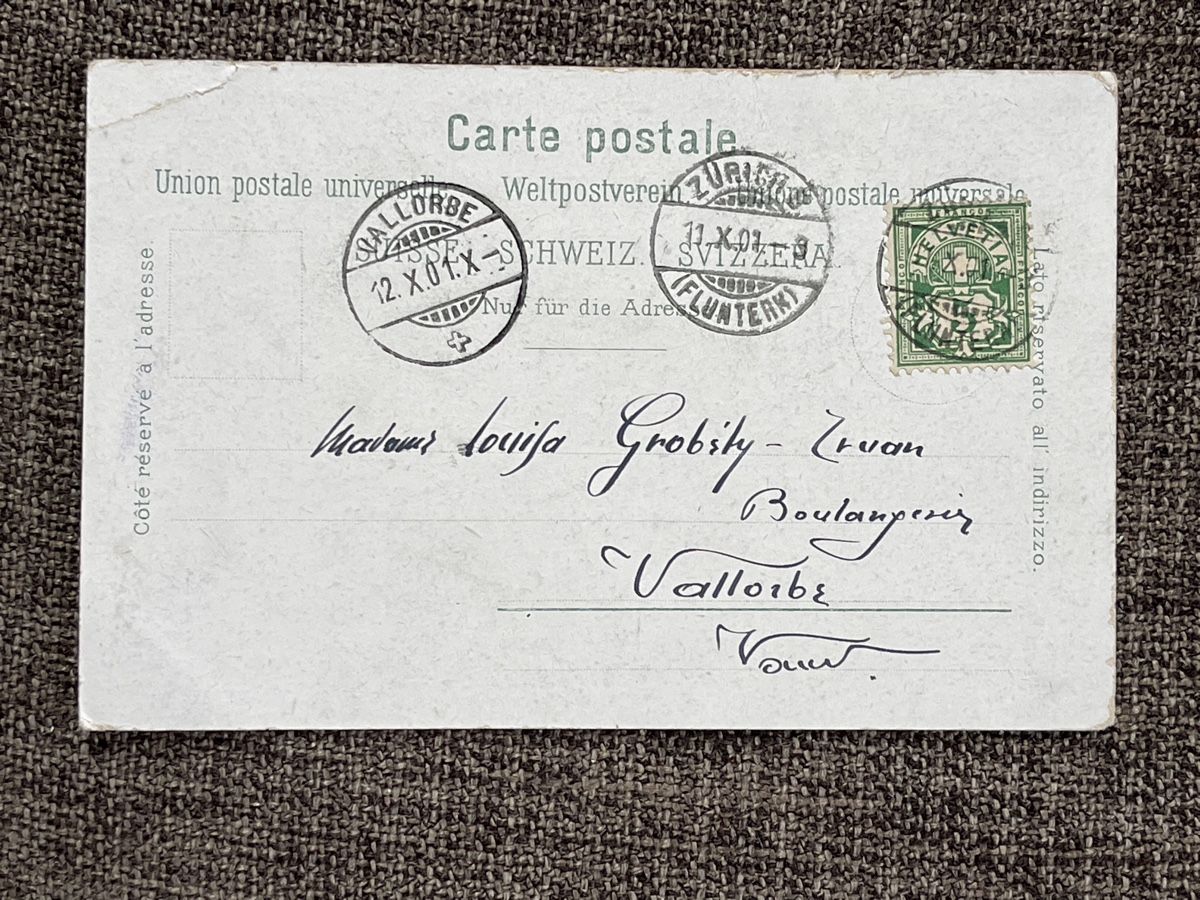 Carte postale
Union postale universelle. Weltpostverein. Unione postale universale
SUISSE. SCHWEIZ. SVIZZERA
Nur für die Adresse
Côté réservé à l'adresse
Lato riservato all' indirizzo.
VALLORBE
12.X.01.X-
ZÜRICH
11.X.01.-9
(FLUNTERN)
FRANCO
HELVETIA
5
Madame Louisa Grobéty-
Boulangerie
Vallorbe
Vaud.